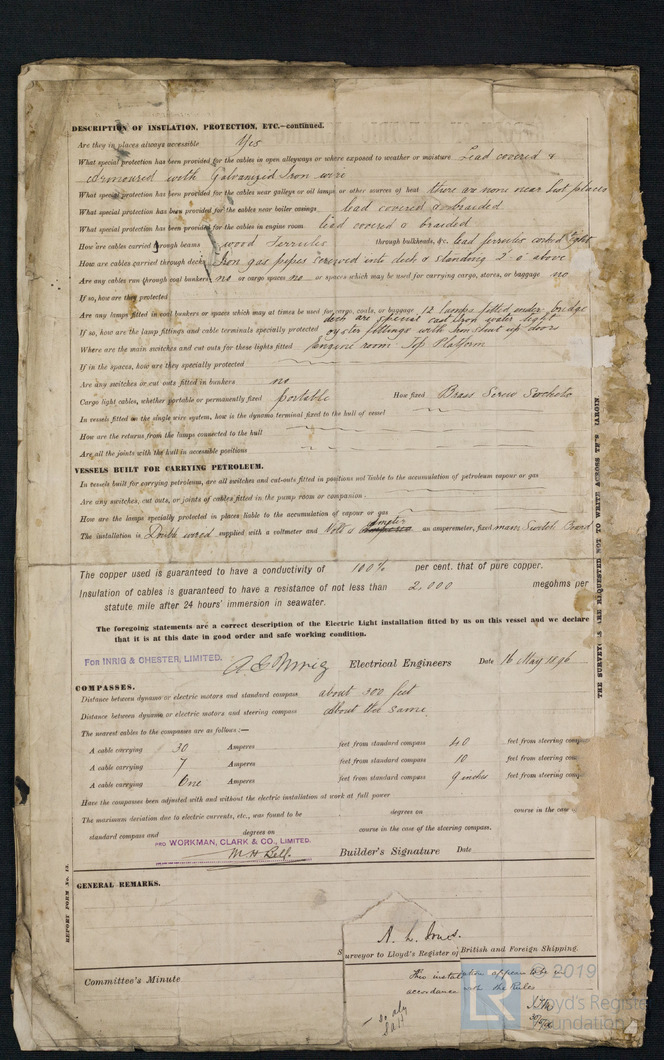 DESCRIPTION OF INSULATION, PROTECTION, ETC.—continued.
Are they in places always accessible Yes
What special protection has been provided for the cables in open alleyways or where exposed to weather or moisture Lead covered &
Armoured with Galvanized Iron wire
What special protection has been provided for the cables near galleys or oil lamps or other sources of heat there are none near hot places
What special protection has been provided for the cables near boiler casings lead covered & braided
What special protection has been provided for the cables in engine room lead covered & braided
How are cables carried through beams wood Ferrules through bulkheads, &c. lead ferrules corked tight
How are cables carried through decks Iron gas pipes screwed into deck & standing 2-0 above
Are any cables run through coal bunkers no or cargo spaces no or spaces which may be used for carrying cargo, stores, or baggage no
If so, how are they protected
Are any lamps fitted in coal bunkers or spaces which may at times be used for cargo, coals, or baggage 12 lamps fitted under bridge
deck are special cast iron water tight
If so, how are the lamp fittings and cable terminals specially protected oyster fittings with iron shut up doors
Where are the main switches and cut outs for these lights fitted Engine room Top Platform
If in the spaces, how are they specially protected
Are any switches or cut outs fitted in bunkers no
Cargo light cables, whether portable or permanently fixed portable How fixed Brass Screw
In vessels fitted on the single wire system, how is the dynamo terminal fixed to the hull of vessel
How are the returns from the lamps connected to the hull
Are all the joints with the hull in accessible positions
VESSELS BUILT FOR CARRYING PETROLEUM.
In vessels built for carrying petroleum, are all switches and cut-outs fitted in positions not liable to the accumulation of petroleum vapour or gas
Are any switches, cut outs, or joints of cables fitted in the pump room or companion
How are the lamps specially protected in places liable to the accumulation of vapour or gas
The installation is Double wired supplied with a voltmeter and an amperemeter, fixed main Switch Board
The copper used is guaranteed to have a conductivity of 100% per cent. that of pure copper.
Insulation of cables is guaranteed to have a resistance of not less than 2,000 megohms per
statute mile after 24 hours' immersion in seawater.
The foregoing statements are a correct description of the Electric Light installation fitted by us on this vessel and we declare
that it is at this date in good order and safe working condition.
FOR INRIG & CHESTER, LIMITED. Electrical Engineers Date 16 May 1896
COMPASSES.
Distance between dynamo or electric motors and standard compass about 100 feet
Distance between dynamo or electric motors and steering compass about the same
The nearest cables to the compasses are as follows:—
A cable carrying 30 Amperes feet from standard compass 40 feet from steering
A cable carrying 7 Amperes feet from standard compass 10 feet from steering
A cable carrying One Amperes feet from standard compass 9 inches feet from steering
Have the compasses been adjusted with and without the electric installation at work at full power
The maximum deviation due to electric currents, etc., was found to be degrees on course in the case
standard compass and degrees on course in the case of the steering compass.
PRO WORKMAN, CLARK & CO., LIMITED.
Builder's Signature Date
GENERAL REMARKS.
Surveyor to Lloyd's Register of British and Foreign Shipping.
Committee's Minute
This installation appears to be in
accordance with the Rules
REPORT FORM No. 13.
THE SURVEYORS ARE REQUESTED NOT TO WRITE ACROSS THIS MARGIN.
LR © 2019
Lloyd's Register
Foundation